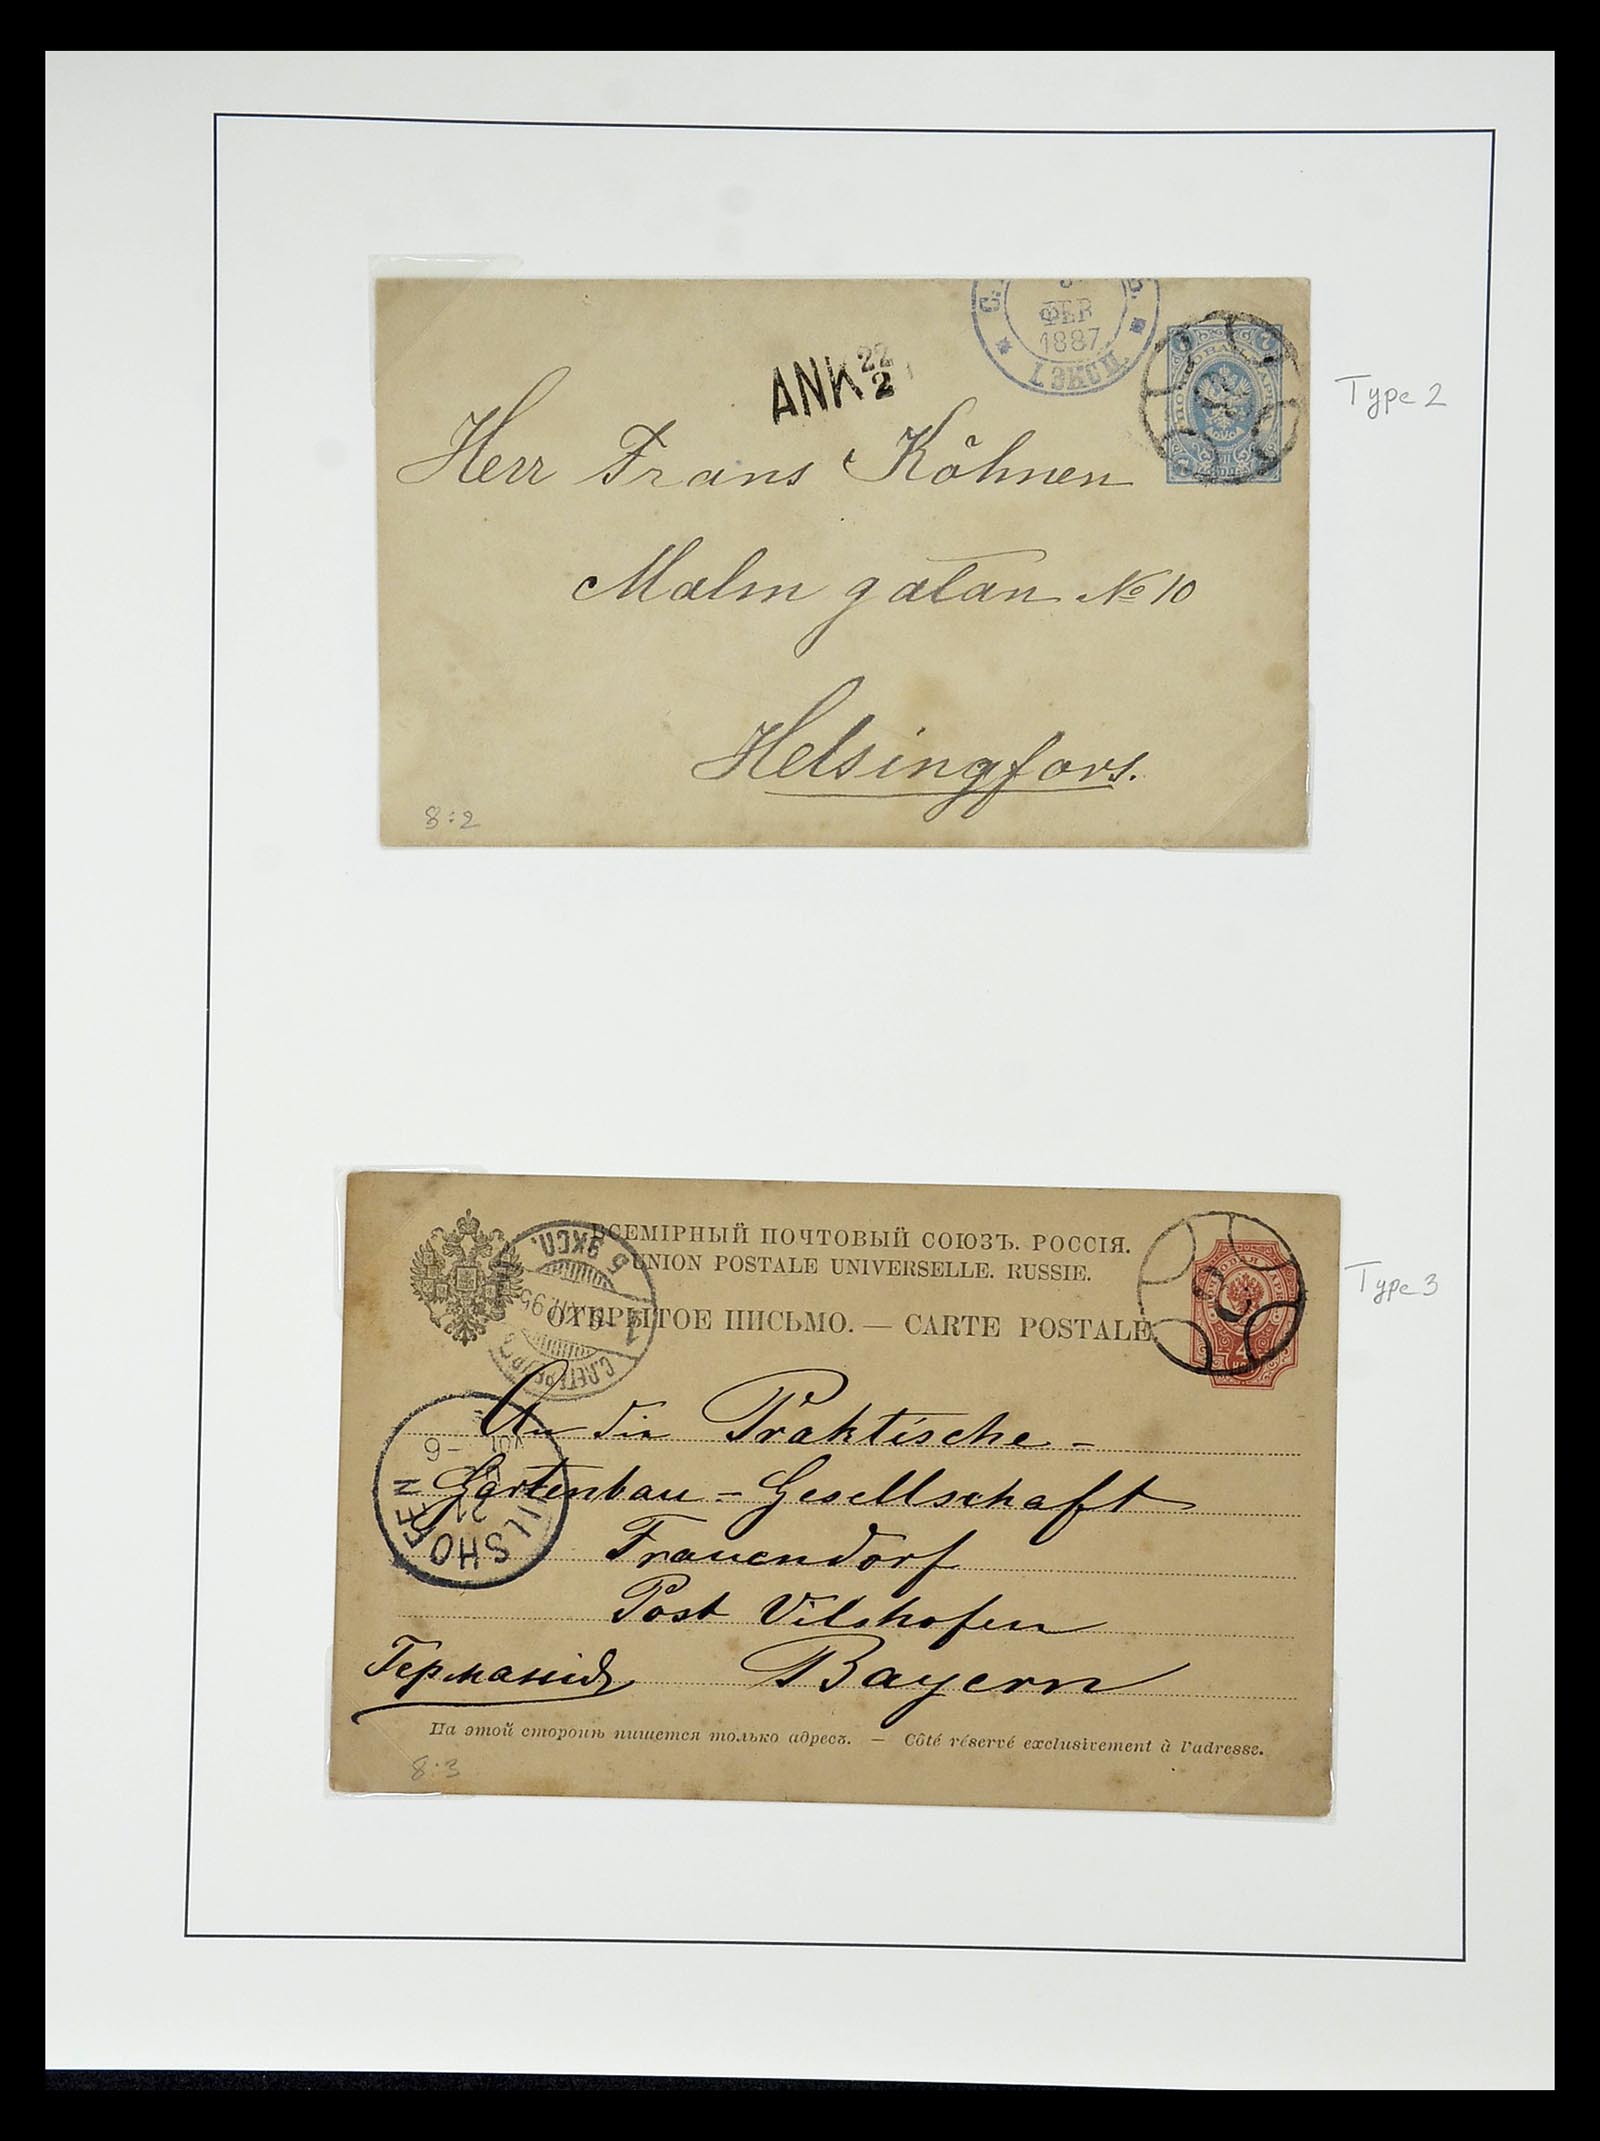 ФЕВ
1887
1. ЭКСП.
ANK 22/2
Type 2
Herr Frans Köhnen
Malmgatan No 10
Helsingfors.
8:2
ВСЕМІРНЫЙ ПОЧТОВЫЙ СОЮЗЪ. РОССІЯ.
UNION POSTALE UNIVERSELLE. RUSSIE.
ОТКРЫТОЕ ПИСЬМО. — CARTE POSTALE
5 ЭКСП.
С.ПЕТЕРБУРГЪ
Type 3
4
An die Praktische-
Gartenbau-Gesellschaft
Frauendorf
Post Vilshofen
Германія Bayern
VILSHOFEN
На этой сторонѣ пишется только адресъ. — Côté réservé exclusivement à l'adresse.
8:3